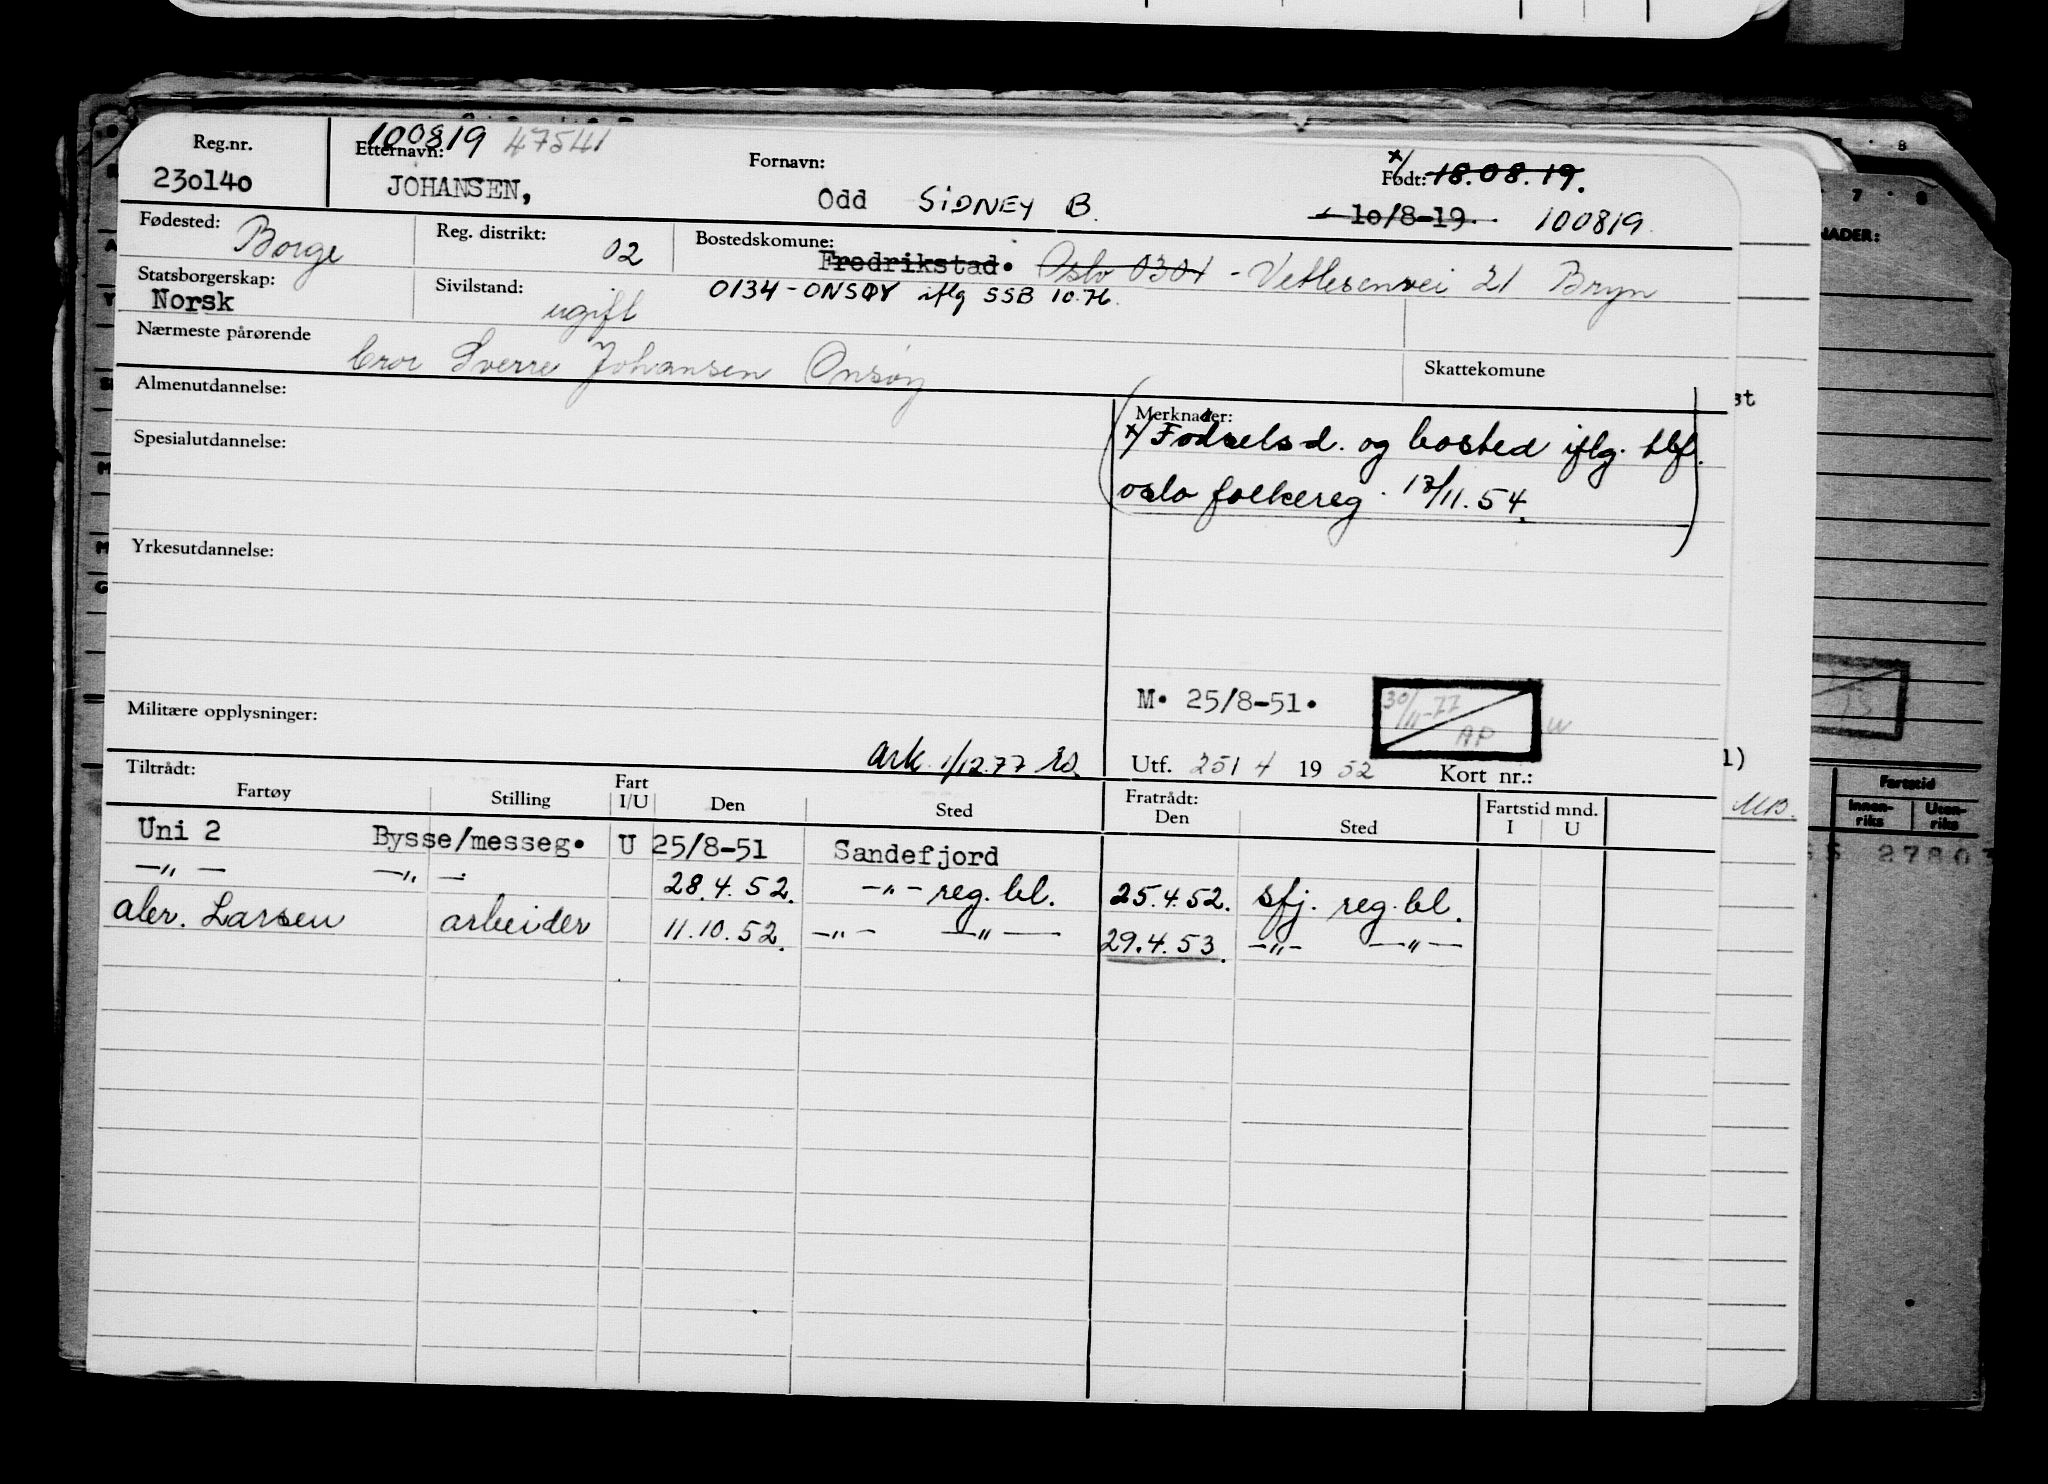 Reg.nr.
230140
100819 47541
Etternavn:
JOHANSEN,
Fornavn:
Odd SIDNEY B.
x/
Født: 18.08.19.
10/8-19. 100819
Fødested:
Borge
Reg. distrikt:
02
Bostedskomune:
Fredrikstad. Oslo 0301 - Vetlesenvei 21 Bryn
0134 - ONSØY iflg SSB 10.76.
Statsborgerskap:
Norsk
Sivilstand:
ugift
Nærmeste pårørende
bror Sverre Johansen Onsøy
Skattekomune
Almenutdannelse:
Spesialutdannelse:
Yrkesutdannelse:
Militære opplysninger:
ark. 1/12.77
Merknader:
x/ Fødselsd. og bosted iflg. tlf.
oslo folkereg. 17/11.54.
M. 25/8-51.
30/11-77
AP
Utf. 25/4 1952 Kort nr.:
Tiltrådt:
Fartøy Stilling Fart I/U Den Sted
Fratrådt:
Den Sted
Fartstid mnd.
I U
Uni 2 Bysse/messeg. U 25/8-51 Sandefjord
-"- -"- 28.4.52. -"- reg. bl. 25.4.52. Sfj. reg. bl.
aler. Larsen arbeider 11.10.52. -"- -"- 29.4.53. -"- -"-
7 8
NADER:
st
1)
Fartstid
Innen-
riks
Uten-
riks
MB.